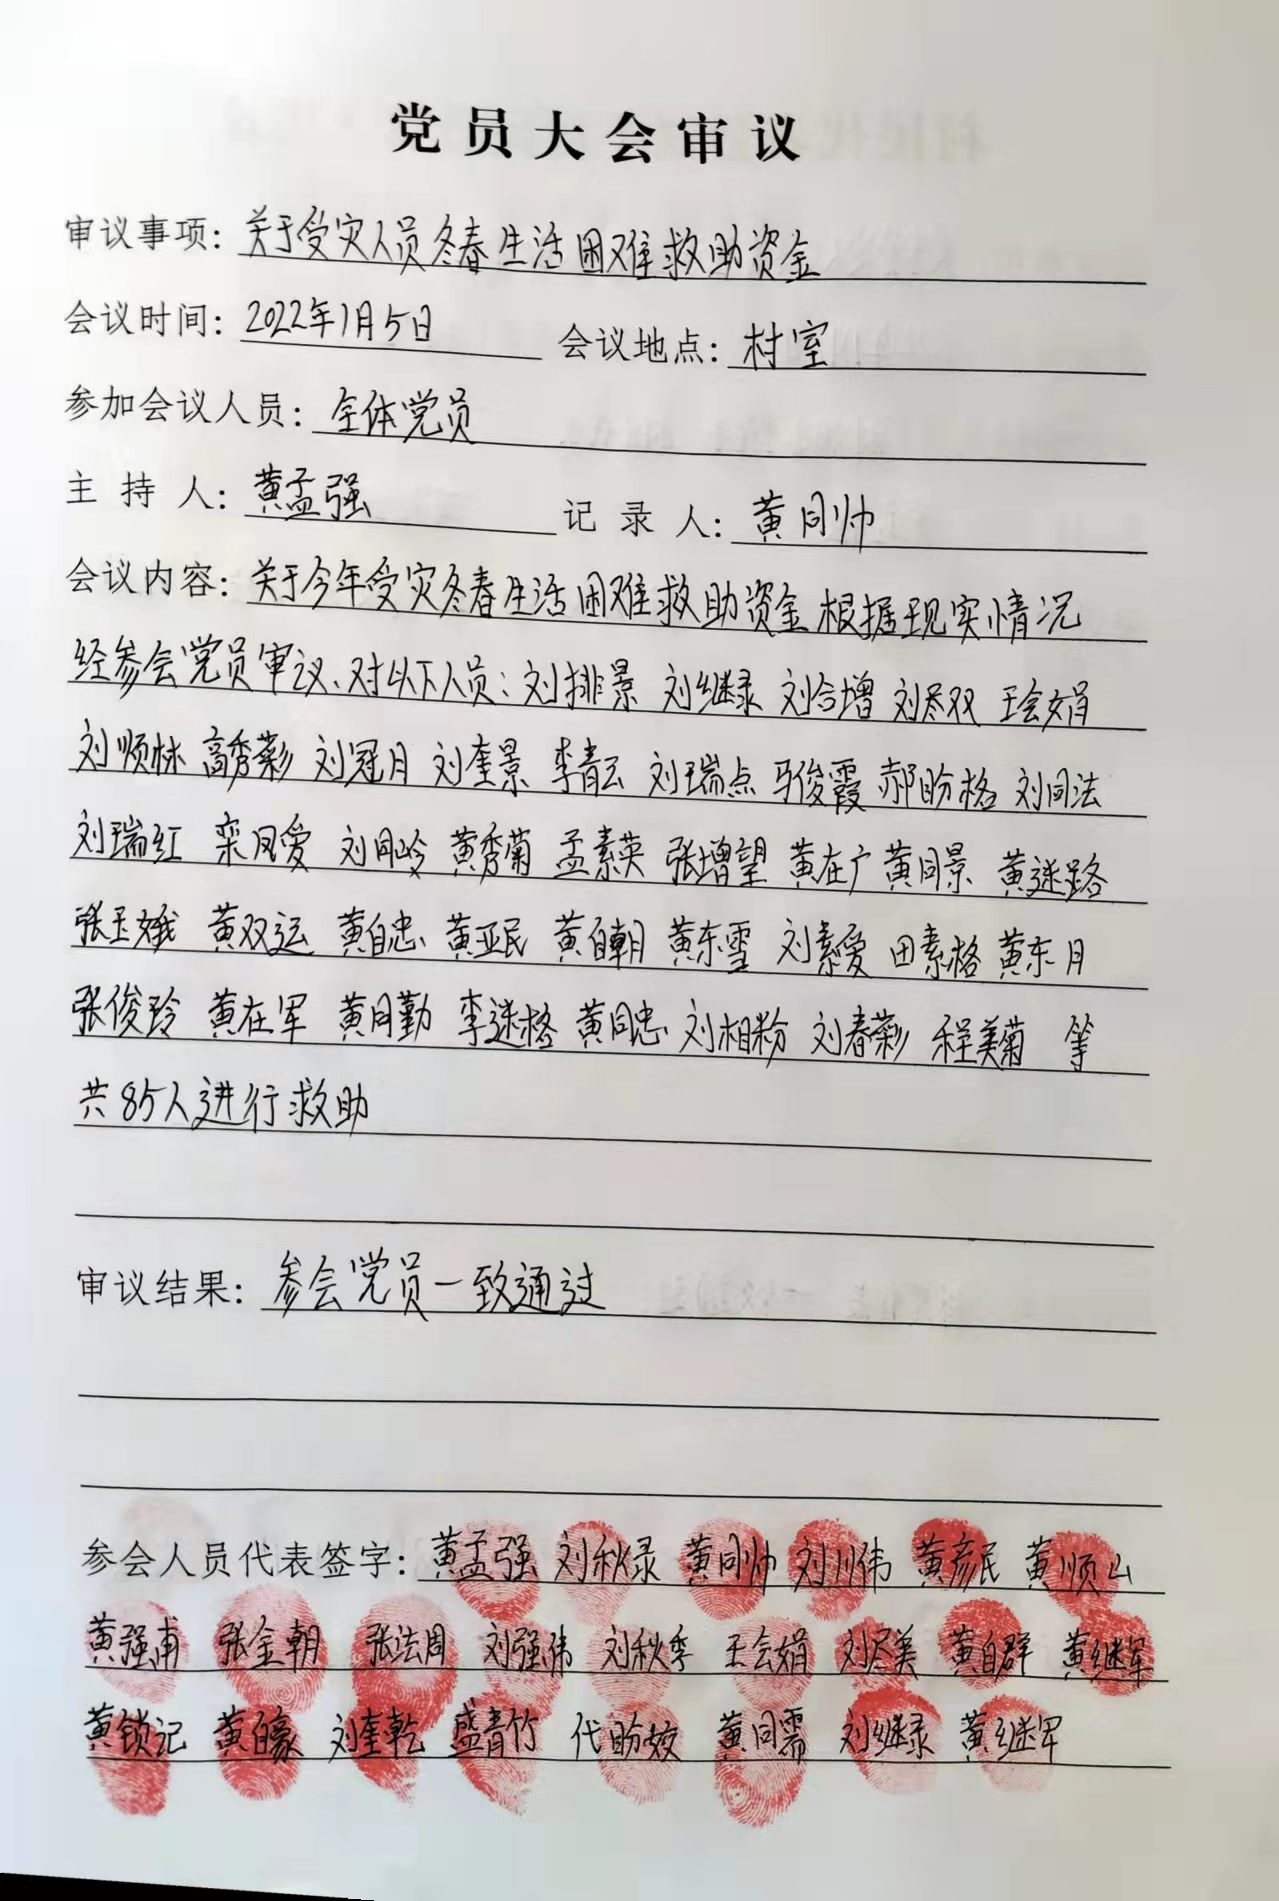 党员大会审议
审议事项：关于受灾人员冬春生活困难救助资金
会议时间：2022年1月5日 会议地点：村室
参加会议人员：全体党员
主持人：黄孟强 记录人：黄同帅
会议内容：关于今年受灾冬春生活困难救助资金根据现实情况
经参会党员审议、对以下人员：刘排景 刘继录 刘合增 刘尽双 王会娟
刘顺林 高秀彩 刘冠月 刘奎景 李青云 刘瑞点 马俊霞 郝盼格 刘同法
刘瑞红 栾凤爱 刘同岭 黄秀菊 孟素英 张增望 黄在广 黄同景 黄迷路
张玉娥 黄双运 黄自忠 黄亚民 黄自朝 黄东雪 刘素爱 田素格 黄东月
张俊玲 黄在军 黄同勤 李迷格 黄同忠 刘相粉 刘春彩 程美菊 等
共85人进行救助
审议结果：参会党员一致通过
参会人员代表签字：黄孟强 刘秋录 黄同帅 刘川伟 黄彦民 黄顺山
黄强甫 张金朝 张法周 刘强伟 刘秋季 王会娟 刘尽美 黄自群 黄继军
黄锁记 黄自豪 刘奎乾 盛青竹 代盼姣 黄同需 刘继录 黄继军